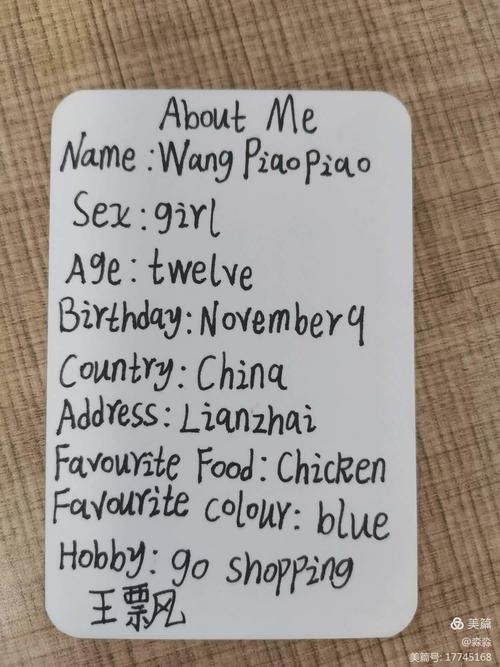 About Me
Name:Wang PiaoPiao
Sex:girl
Age:twelve
Birthday:November9
Country:China
Address:Lianzhai
Favourite Food:Chicken
Favourite colour:blue
Hobby:go shopping
王飘
美篇
@淼淼
美篇号:17745168